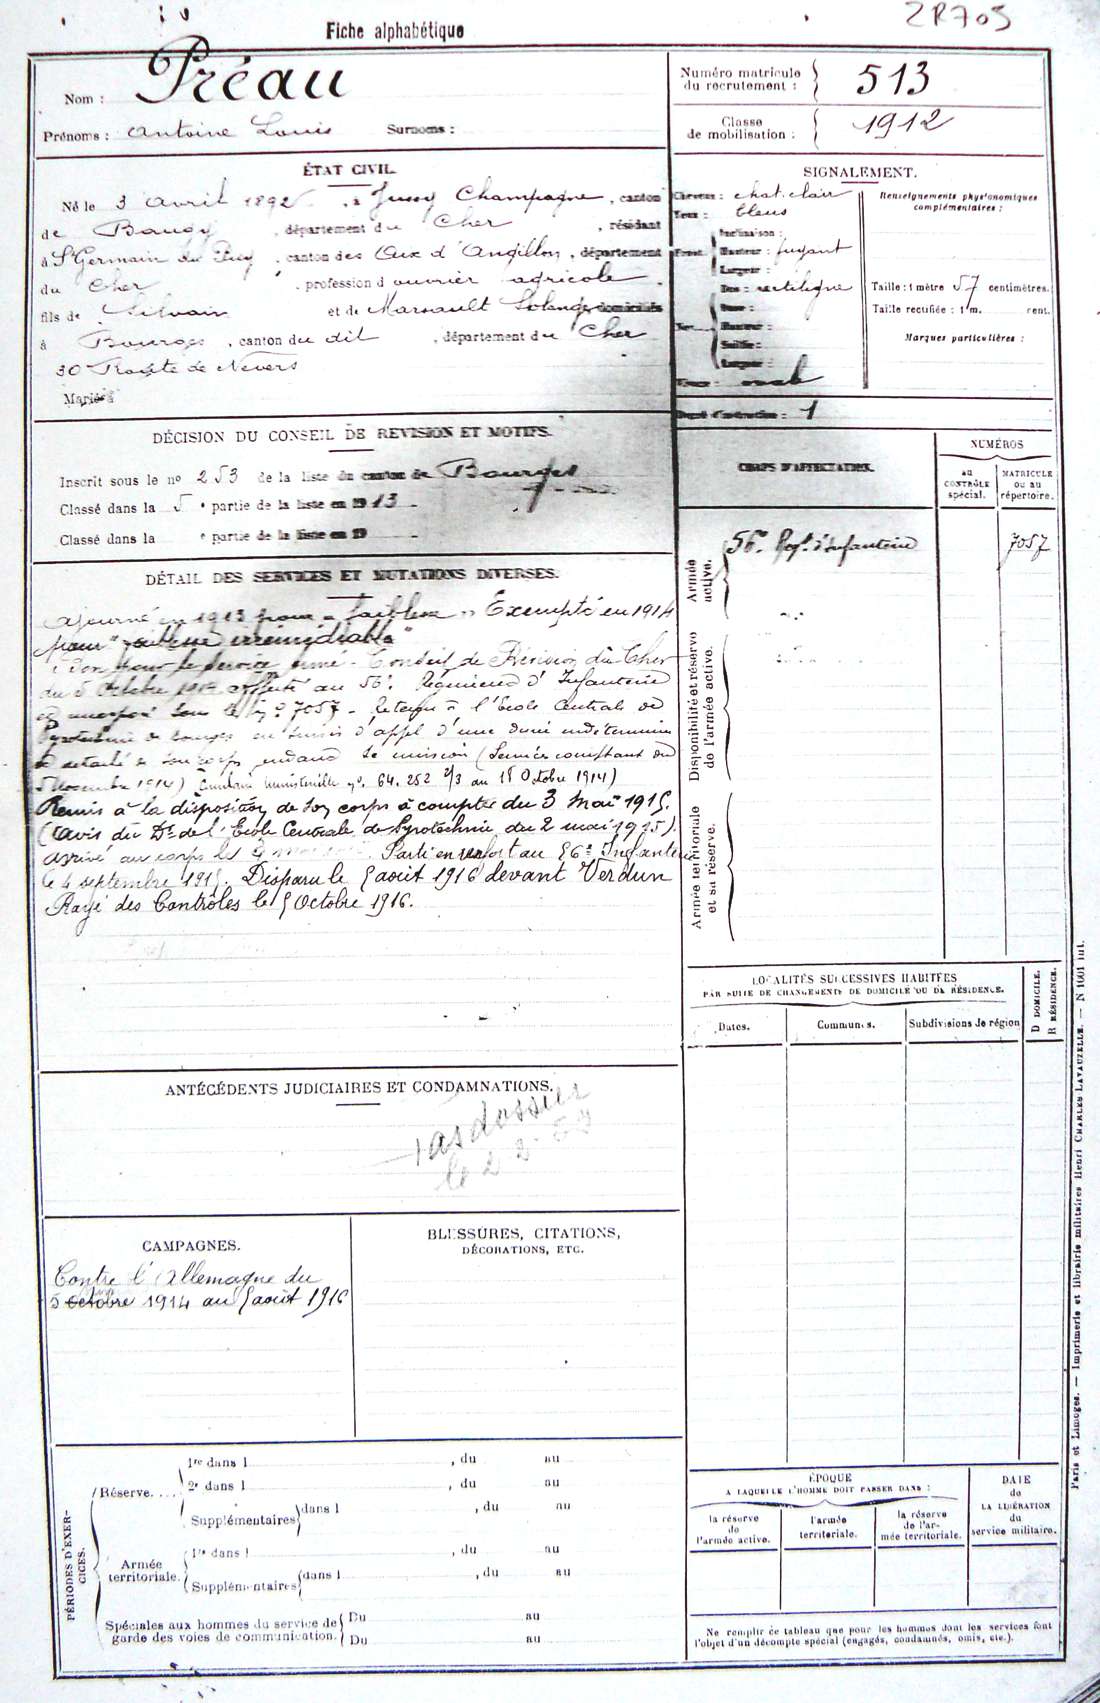 2R705
Fiche alphabétique
Nom : Préau
Prénoms : Antoine Louis Surnoms :
Numéro matricule du recrutement : 513
Classe de mobilisation : 1912
ÉTAT CIVIL.
Né le 3 avril 1892, à Jussy Champagne, canton
de Baugy, département du Cher, résidant
à St Germain du Puy, canton des Aix d'Angillon, département
du Cher, profession d'ouvrier agricole
fils de Silvain et de Marsault Solange, domiciliés
à Bourges, canton du dit, département du Cher
30 Route de Nevers
Marié à
SIGNALEMENT.
Cheveux : chat. clair
Yeux : bleus
Front
Inclinaison :
Hauteur : fuyant
Largeur :
Nez
Dos : rectiligne
Base :
Hauteur :
Saillie :
Largeur :
Visage : ovale
Renseignements physionomiques
complémentaires :
Taille : 1 mètre 57 centimètres.
Taille rectifiée : 1 m. cent.
Marques particulières :
Degré d'instruction : 1
DÉCISION DU CONSEIL DE REVISION ET MOTIFS.
Inscrit sous le no 253 de la liste du canton de Bourges
Classé dans la 5e partie de la liste en 1913
Classé dans la e partie de la liste en 19
CORPS D'AFFECTATION.
NUMÉROS
AU CONTRÔLE spécial.
MATRICULE ou au répertoire.
Armée active.
56e Régt d'Infanterie 7057
Disponibilité et réserve de l'armée active.
Armée territoriale et sa réserve.
DÉTAIL DES SERVICES ET MUTATIONS DIVERSES.
Ajourné en 1913 pour "faiblesse" Exempté en 1914
pour "faiblesse irrémédiable"
Bon pour le service armé. Conseil de Révision du Cher
du 5 Octobre affecté au 56e Régiment d'Infanterie
et incorporé sous le no 7057. Retenu à l'École Centrale de
Pyrotechnie de Bourges en sursis d'appel d'une durée indéterminée
et détaché de son corps pendant sa mission (Services comptant du
5 Novembre 1914) Circulaire ministérielle no. 64.252 2/3 du 18 Octobre 1914)
Remis à la disposition de son corps à compter du 3 Mai 1915.
(avis du Dr de l'École Centrale de Pyrotechnie du 2 mai 1915).
Arrivé au corps les Parti en renfort au 56e Infanterie
le 4 septembre 1915. Disparu le 5 août 1916 devant Verdun
Rayé des Contrôles le 5 Octobre 1916.
LOCALITÉS SUCCESSIVES HABITÉES
PAR SUITE DE CHANGEMENTS DE DOMICILE OU DE RÉSIDENCE.
Dates. Communes. Subdivisions de région
D DOMICILE.
R RÉSIDENCE.
ANTÉCÉDENTS JUDICIAIRES ET CONDAMNATIONS.
Pas dossier
le 2 2
CAMPAGNES.
Contre l'Allemagne du
5 octobre 1914 au 5 août 1916
BLESSURES, CITATIONS,
DÉCORATIONS, ETC.
PÉRIODES D'EXERCICES.
Réserve....
1re dans l , du au
2e dans l , du au
Supplémentaires dans l , du au
Armée territoriale.
1re dans l , du au
Supplémentaires dans l , du au
Spéciales aux hommes du service de
garde des voies de communication.
Du au
Du au
ÉPOQUE
A LAQUELLE L'HOMME DOIT PASSER DANS :
la réserve de l'armée active.
l'armée territoriale.
la réserve de l'armée territoriale.
DATE de LA LIBÉRATION du service militaire.
Ne remplir ce tableau que pour les hommes dont les services font
l'objet d'un décompte spécial (engagés, condamnés, omis, etc.).
Paris et Limoges. — Imprimerie et librairie militaires Henri CHARLES-LAVAUZELLE. — N 1001 int.